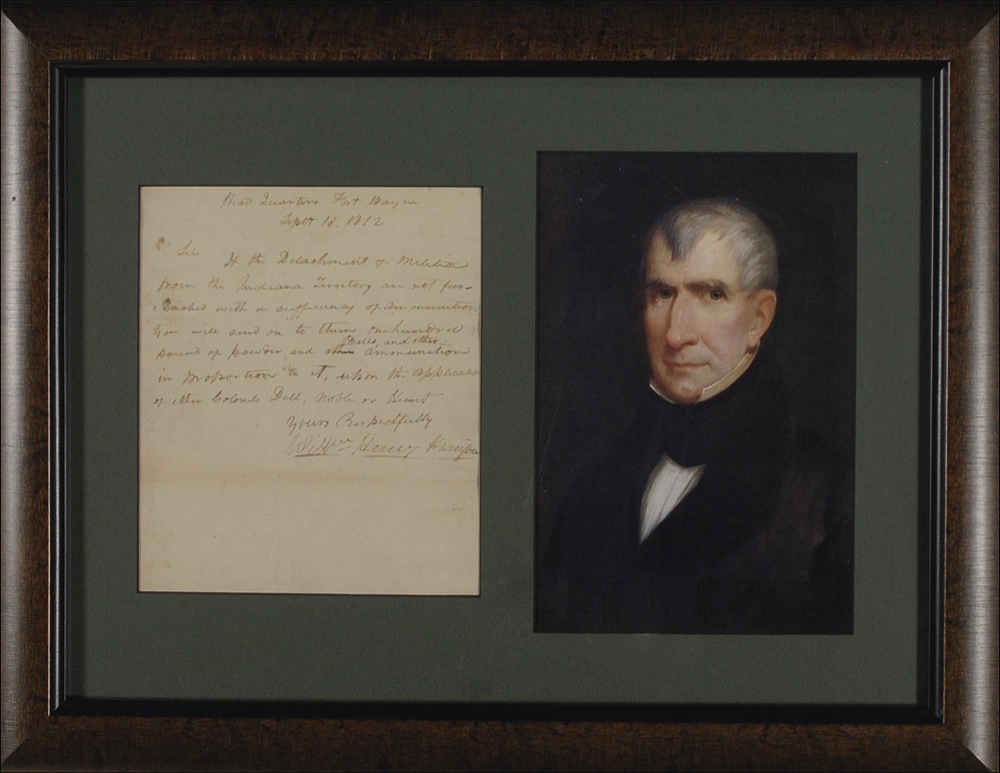 Head Quarters Fort Wayne
Septr 18. 1812
Sir If the Detachment of Militia
from the Indiana Territory are not fur-
nished with a sufficiency of ammunition
you will send on to them one hundred
pound of powder and Balls, and other ammunition
in proportion to it, upon the application
of either Colonels Dell, Noble or Hunt
Yours Respectfully
Willm Henry Harrison